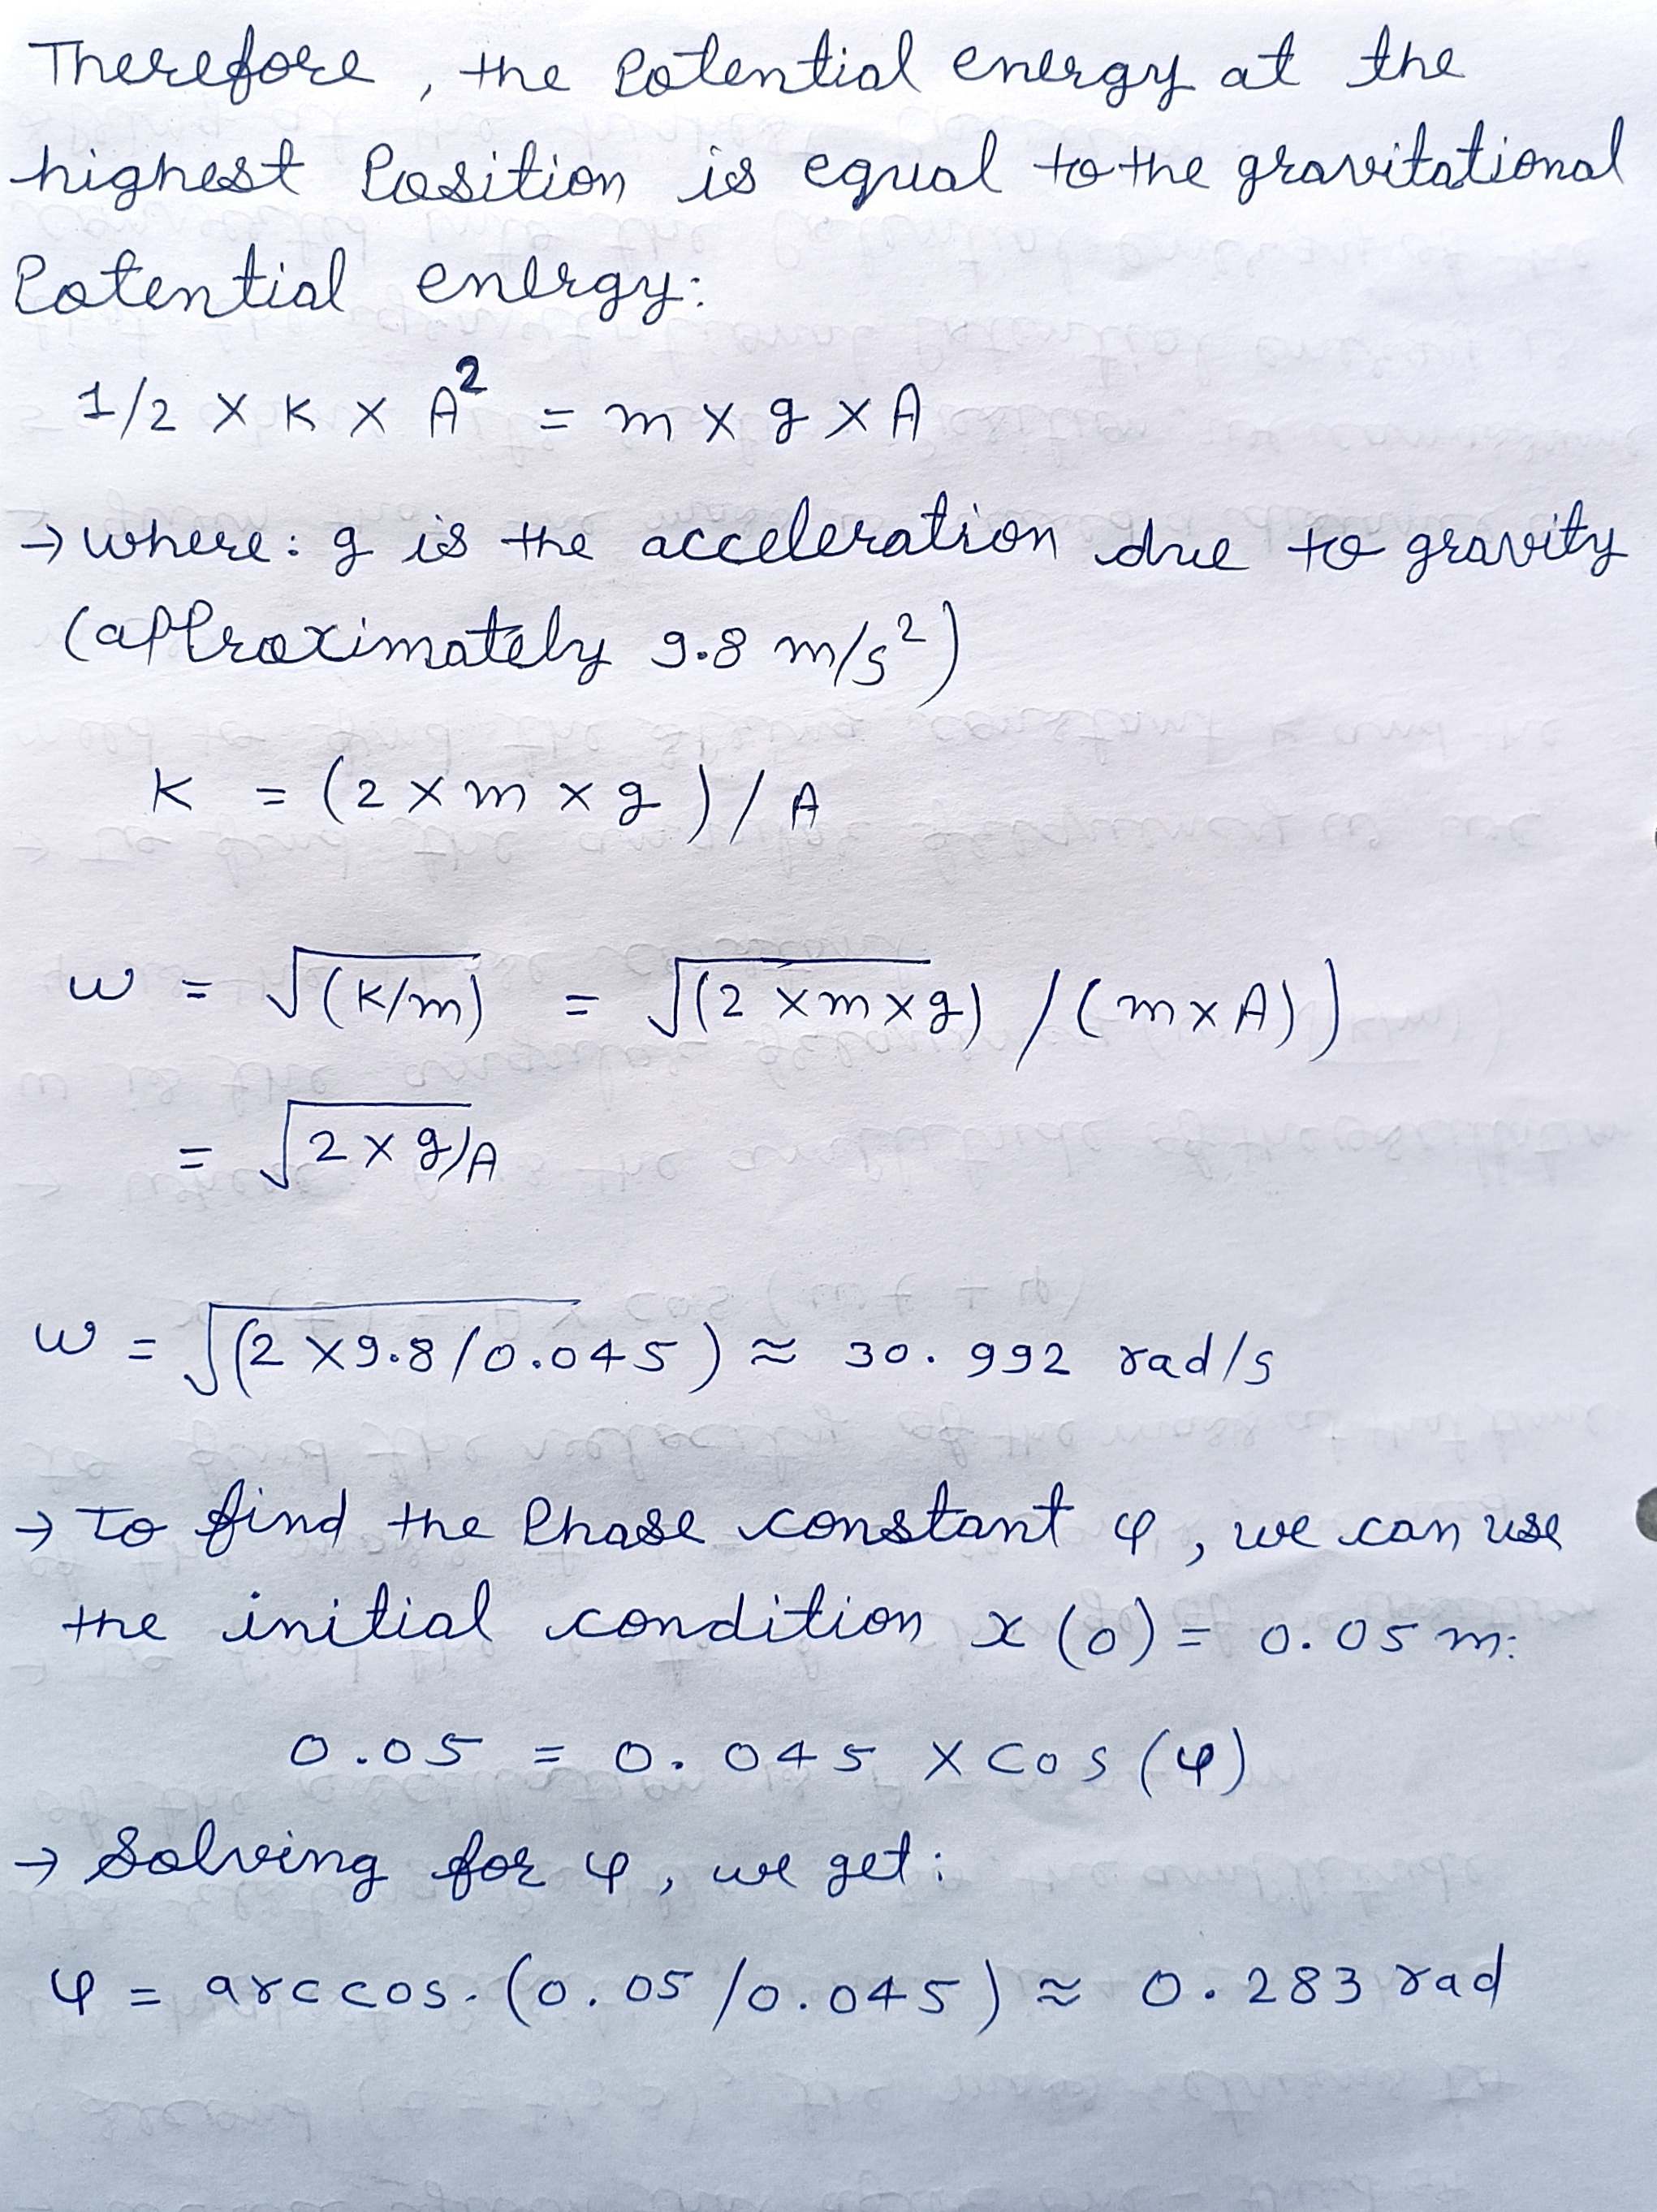 Therefore, the Potential energy at the
highest Position is equal to the gravitational
Potential energy:
1/2 × K × A² = m × g × A
→ where: g is the acceleration due to gravity
(approximately 9.8 m/s²)
K = (2 × m × g) / A
ω = √(K/m) = √(2 × m × g) / (m × A))
= √2 × g/A
ω = √(2 × 9.8 / 0.045) ≈ 30.992 rad/s
→ To find the Phase constant φ, we can use
the initial condition x(0) = 0.05 m:
0.05 = 0.045 × cos(φ)
→ Solving for φ, we get:
φ = arccos.(0.05 / 0.045) ≈ 0.283 rad